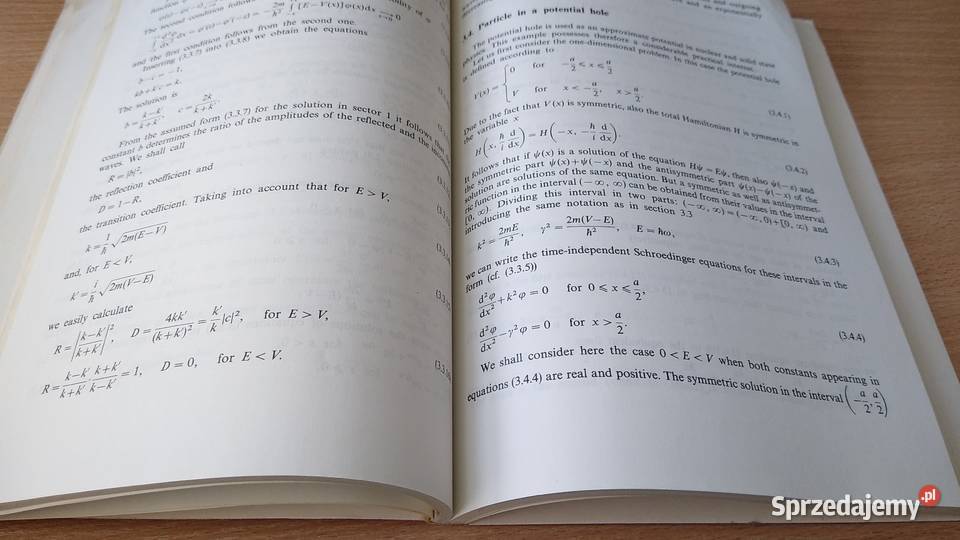 The second condition follows
and the first condition follows from the second one.
Inserting (3.3.7) into (3.3.8) we obtain the equations
b−c=−1,
kb+k'c=k.
The solution is
b=\frac{k−k'}{k+k'}, c=\frac{2k}{k+k'}.
From the assumed form (3.3.7) for the solution in sector 1 it follows that
constant b determines the ratio of the amplitudes of the reflected and the
waves. We shall call
R=|b|²,
the reflection coefficient and
D=1−R,
the transition coefficient. Taking into account that for E>V,
k=\frac{1}{ħ}\sqrt{2m(E−V)}
and, for E<V,
k'=\frac{i}{ħ}\sqrt{2m(V−E)}
we easily calculate
R=|\frac{k−k'}{k+k'}|², D=\frac{4kk'}{(k+k')²}=\frac{k'}{k}|c|², for E>V,
R=\frac{k−k'}{k+k'}\frac{k+k'}{k−k'}=1, D=0, for E<V.
3.4. Particle in a potential hole
The potential hole is used as an approximate potential in nuclear and solid state
physics. This example possesses therefore a considerable practical interest.
Let us first consider the one-dimensional problem. In this case the potential hole
is defined according to
V(x)={0 for −\frac{a}{2}≤x≤\frac{a}{2}
V for x<−\frac{a}{2}, x>\frac{a}{2}.
(3.4.1)
Due to the fact that V(x) is symmetric, also the total Hamiltonian H is symmetric in
the variable x
H(x, \frac{ħ}{i}\frac{d}{dx})=H(−x, −\frac{ħ}{i}\frac{d}{dx}).
(3.4.2)
It follows that if ψ(x) is a solution of the equation Hψ=Eψ, then also ψ(−x) and
the symmetric part ψ(x)+ψ(−x) and the antisymmetric part ψ(x)−ψ(−x) of the
solution are solutions of the same equation. But a symmetric as well as antisymmet-
ric function in the interval (−∞, ∞) can be obtained from their values in the interval
[0, ∞). Dividing this interval in two parts: (−∞, ∞)=(−∞, 0)+[0, ∞) and
introducing the same notation as in section 3.3
k²=\frac{2mE}{ħ²}, γ²=\frac{2m(V−E)}{ħ²}, E=ħω,
(3.4.3)
we can write the time-independent Schroedinger equations for these intervals in the
form (cf. (3.3.5))
\frac{d²φ}{dx²}+k²φ=0 for 0≤x≤\frac{a}{2},
\frac{d²φ}{dx²}−γ²φ=0 for x>\frac{a}{2}.
(3.4.4)
We shall consider here the case 0<E<V when both constants appearing in
equations (3.4.4) are real and positive. The symmetric solution in the interval (−\frac{a}{2}, \frac{a}{2})
Sprzedajemy.pl